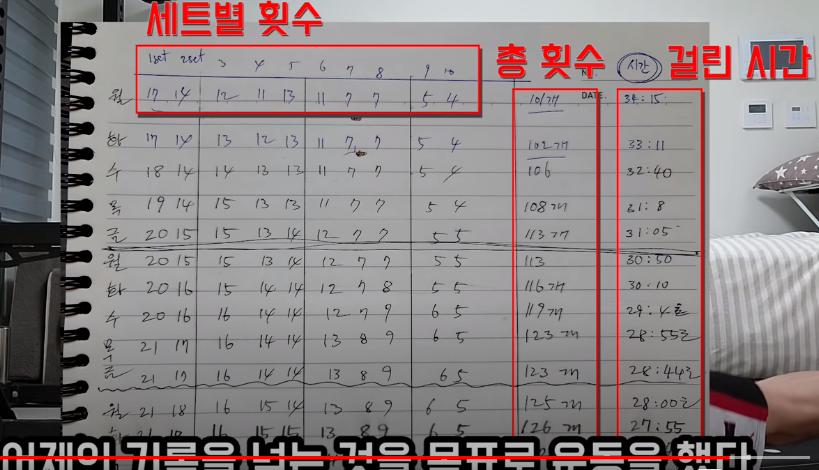 세트별 횟수
총 횟수
걸린 시간
1set 2set 3 4 5 6 7 8 9 10 시간
DATE.
월 17 14 12 11 13 11 7 7 5 4 101개 34:15
화 17 14 13 12 13 11 7 7 5 4 102개 33:11
수 18 14 14 13 13 11 7 7 5 4 106 32:40
목 19 14 15 13 13 11 7 7 5 4 108개 31:8
금 20 15 15 13 14 12 7 7 5 5 113개 31:05
월 20 15 15 13 14 12 7 7 5 5 113 30:50
화 20 16 15 14 14 12 7 8 5 5 116개 30:10
수 20 16 16 14 14 12 7 9 6 5 119개 29:4초
목 21 17 16 14 14 13 8 9 6 5 123개 28:55초
금 21 17 16 14 14 13 8 9 6 5 123개 28:44초
월 21 18 16 15 14 13 8 9 6 5 125개 28:00초
21 18 16 15 15 13 8 9 6 5 126개 27:55
어제의 기록을 넘는 것을 목표로 운동을 했다